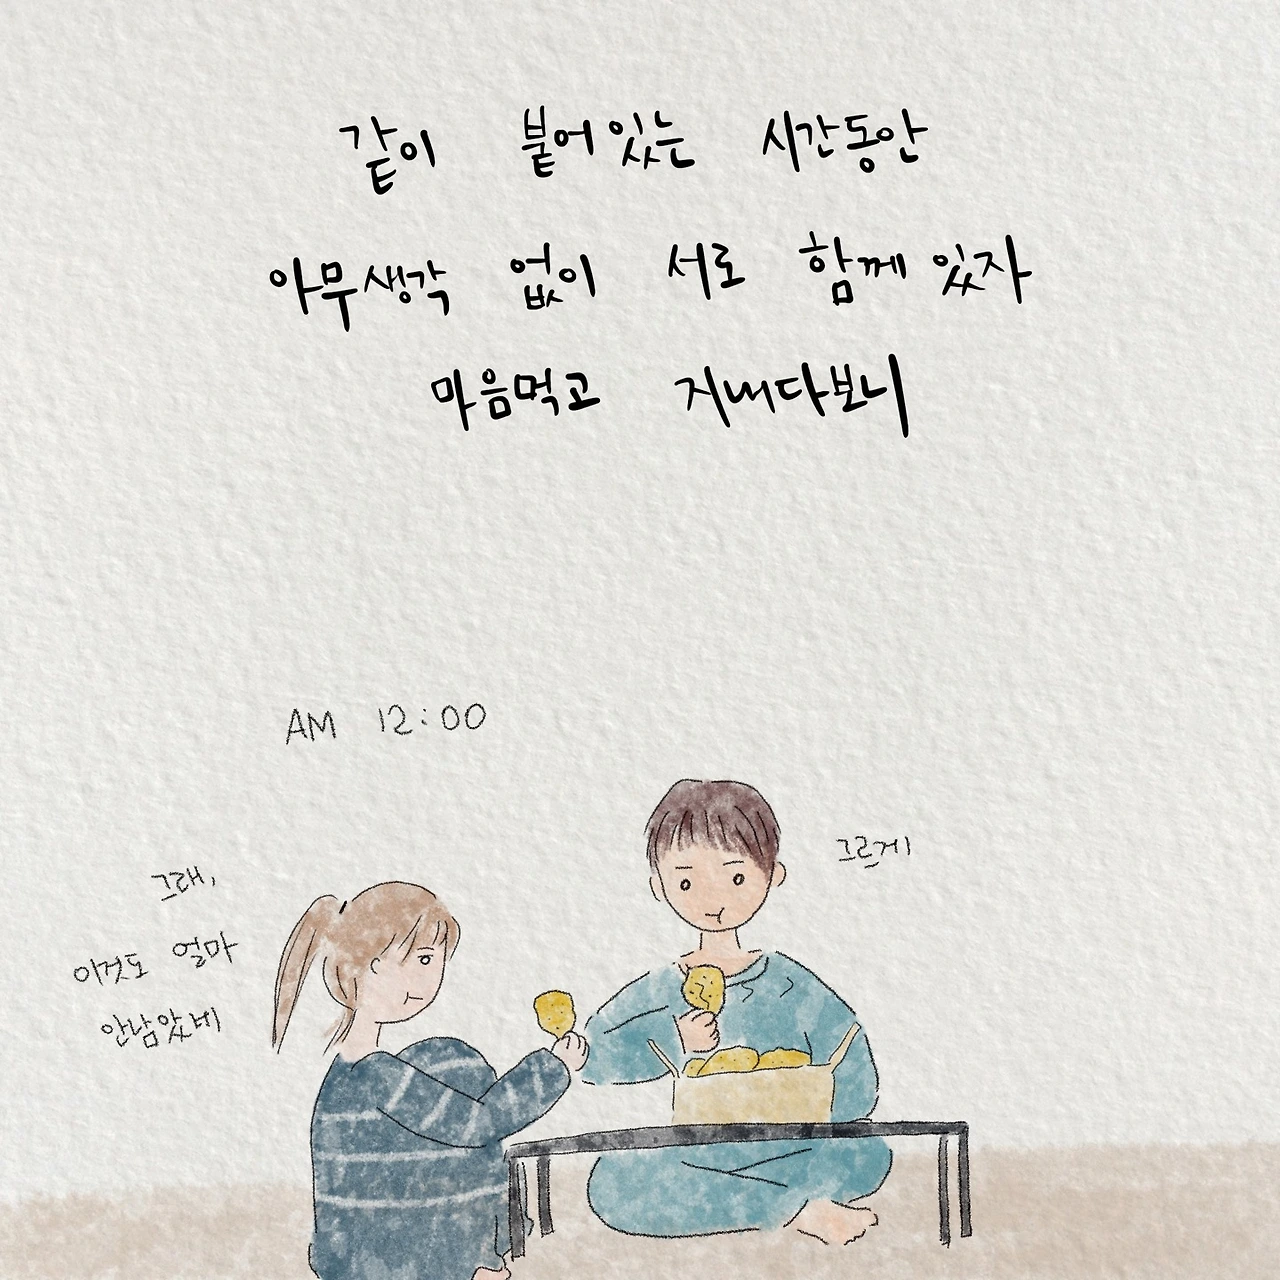 같이 붙어있는 시간동안
아무생각 없이 서로 함께 있자
마음먹고 지내다보니
AM 12:00
그르게
그래,
이것도 얼마
안남았네